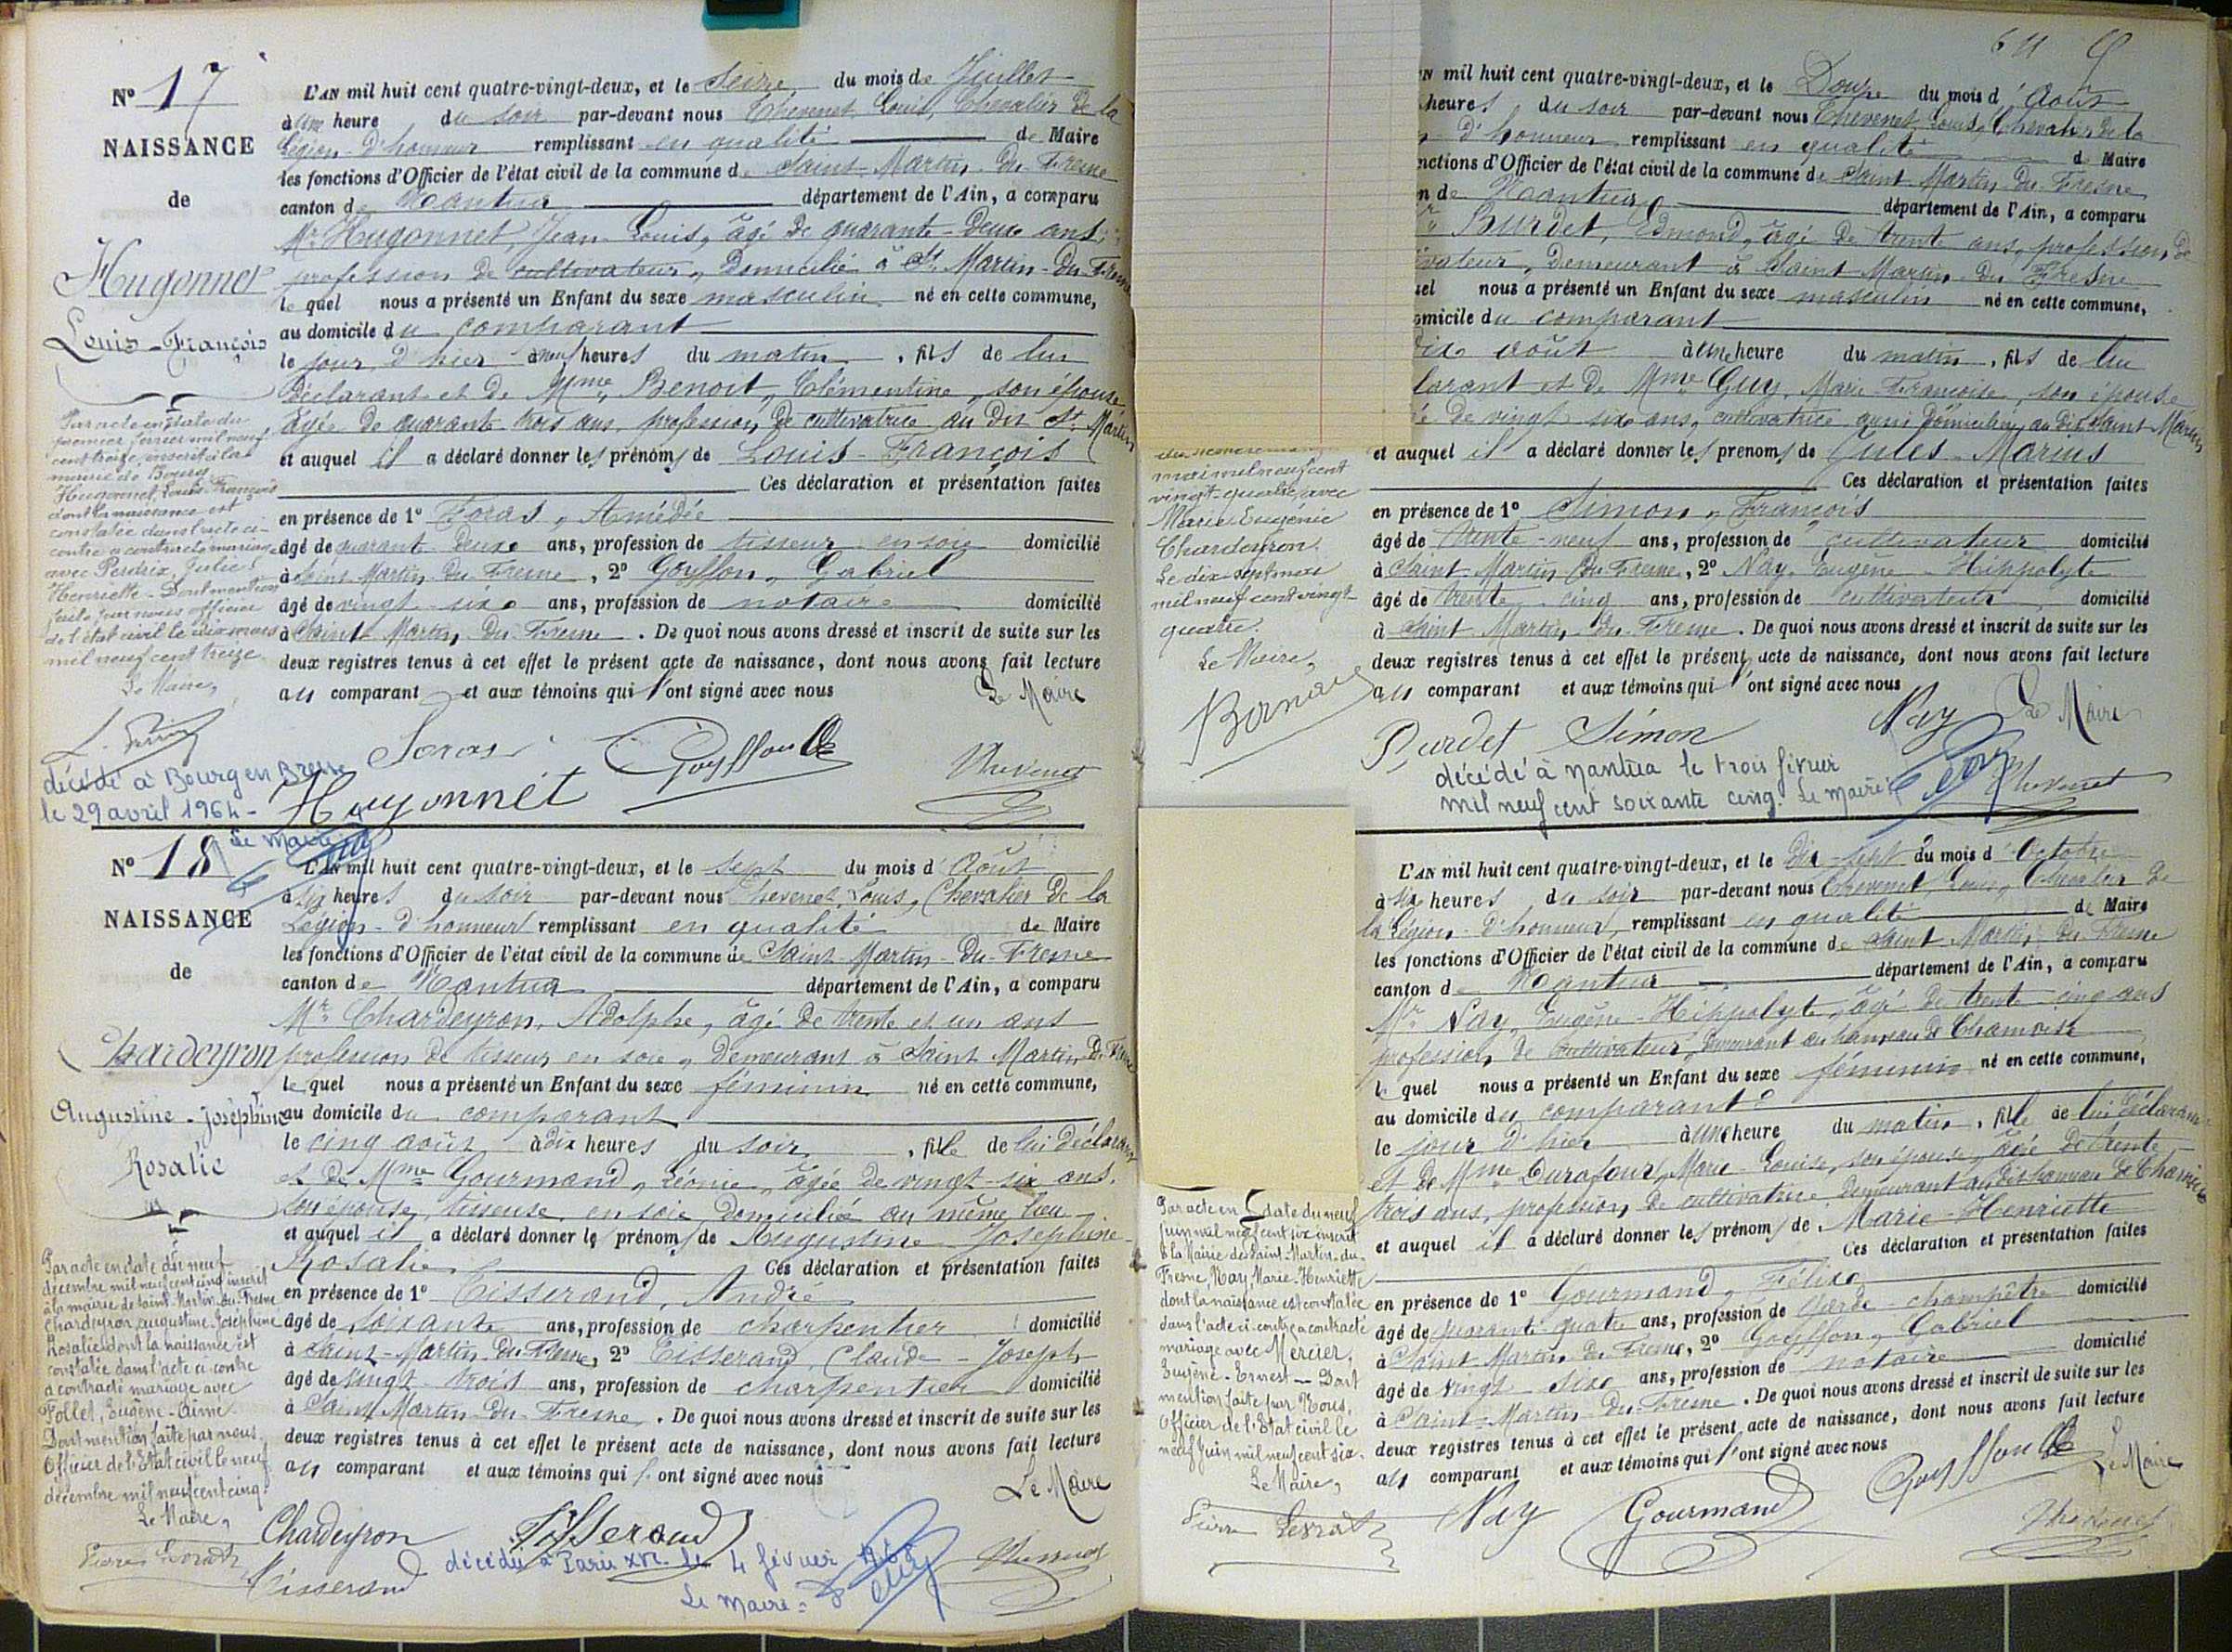 Nº 17
NAISSANCE
de
Hugonnet
Louis-François
Par acte en date du
premier février mil neuf
cent treize, inscrit à la
mairie de Bourg
Hugonnet, Louis-François
dont la naissance est
constatée dans l'acte ci-
contre a contracté mariage
avec Perdrix, Julie
Henriette - Dont mention
faite par nous officier
de l'état civil le dix mars
mil neuf cent treize
Le Maire,
décédé à Bourg en Bresse
le 29 avril 1964 -
Le Maire
L'AN mil huit cent quatre-vingt-deux, et le Seize du mois de Juillet
à une heure du soir par-devant nous Chevenet, Louis, Chevalier De la
Légion-D'honneur remplissant en qualité de Maire
les fonctions d'Officier de l'état civil de la commune de Saint-Martin-Du-Fresne
canton de Nantua département de l'Ain, a comparu
Mr Hugonnet, Jean-Louis, âgé De quarante-Deux ans,
profession De cultivateur, Domicilié à St Martin-Du-Fresne
le quel nous a présenté un Enfant du sexe masculin né en cette commune,
au domicile du comparant
le jour D'hier à neuf heures du matin, fils de lui
Déclarant et De Mme Benoit, Clémentine, son épouse
âgée De quarante trois ans, profession De cultivatrice au Dit St Martin
et auquel il a déclaré donner les prénoms de Louis-François
Ces déclaration et présentation faites
en présence de 1º Foras, Amédée
âgé de quarant Deux ans, profession de tisseur en soie domicilié
à Saint Martin Du Fresne, 2º Goyffon, Gabriel
âgé de vingt-six ans, profession de notaire domicilié
à Saint-Martin Du-Fresne. De quoi nous avons dressé et inscrit de suite sur les
deux registres tenus à cet effet le présent acte de naissance, dont nous avons fait lecture
au comparant et aux témoins qui l'ont signé avec nous
Le Maire
Foras Goyffon
Hugonnet Chevenet
Nº 18
NAISSANCE
de
Chardeyron
Augustine-Joséphine
Rosalie
Par acte en date du neuf
décembre mil neuf cent cinq inscrit
à la mairie de Saint-Martin-du-Fresne
Chardeyron, Augustine-Joséphine
Rosalie dont la naissance est
constatée dans l'acte ci-contre
a contracté mariage avec
Follet, Eugène-Aimé
Dont mention faite par nous
Officier de l'Etat civil le neuf
décembre mil neuf cent cinq.
Le Maire,
L'AN mil huit cent quatre-vingt-deux, et le sept du mois d'Août
à six heures du soir par-devant nous Chevenet, Louis, Chevalier De la
Légion-D'honneur remplissant en qualité de Maire
les fonctions d'Officier de l'état civil de la commune de Saint-Martin-Du-Fresne
canton de Nantua département de l'Ain, a comparu
Mr Chardeyron, Adolphe, âgé De trente et un ans
profession De tisseur en soie, Demeurant à Saint Martin, Du Fresne
le quel nous a présenté un Enfant du sexe féminin né en cette commune,
au domicile du comparant
le cinq août à dix heures du soir, fille de lui déclarant
et De Mme Gourmand, Léonie, âgée De vingt-six ans,
son épouse, tisseuse en soie, Domiciliée au même lieu
et auquel il a déclaré donner le prénom de Augustine Joséphine-
Rosalie Ces déclaration et présentation faites
en présence de 1º Tisserand, André
âgé de Soixante ans, profession de charpentier domicilié
à Saint-Martin-Du-Fresne, 2º Tisserand, Claude-Joseph
âgé de vingt-trois ans, profession de charpentier domicilié
à Saint Martin-Du-Fresne. De quoi nous avons dressé et inscrit de suite sur les
deux registres tenus à cet effet le présent acte de naissance, dont nous avons fait lecture
au comparant et aux témoins qui l'ont signé avec nous
Le Maire
Chardeyron Tisserand
Tisserand Chevenet
décédée à Paris XVI. le 4 février
Le Maire
mil huit cent quatre-vingt-deux, et le Douze du mois d'Août
heures du soir par-devant nous Chevenet, Louis, Chevalier De la
D'honneur remplissant en qualité de Maire
nctions d'Officier de l'état civil de la commune de Saint-Martin-Du-Fresne
n de Nantua département de l'Ain, a comparu
Burdet, Edmond, âgé De trente ans, profession De
ivateur, Demeurant à Saint Martin-Du-Fresne
uel nous a présenté un Enfant du sexe masculin né en cette commune,
omicile du comparant
Dix août à une heure du matin, fils de lui
larant et De Mme Guy, Marie-Françoise, son épouse
De vingt six ans, cultivatrice aussi Domiciliée au Dit Saint-Martin
et auquel il a déclaré donner les prénoms de Jules-Marius
Ces déclaration et présentation faites
en présence de 1º Simon, François
âgé de trente-neuf ans, profession de cultivateur domicilié
à Saint-Martin-Du Fresne, 2º Nay, Eugène-Hippolyte
âgé de trente cinq ans, profession de cultivateur domicilié
à Saint Martin-Du-Fresne. De quoi nous avons dressé et inscrit de suite sur les
deux registres tenus à cet effet le présent acte de naissance, dont nous avons fait lecture
au comparant et aux témoins qui l'ont signé avec nous
mai mil neuf cent
vingt-quatre, avec
Marie Eugénie
Chardeyron.
Le dix-sept mai
mil neuf cent vingt
quatre.
Le Maire,
Burdet Simon Nay Le Maire
Chevenet
décédé à Nantua le trois février
mil neuf cent soixante cinq. Le maire
L'AN mil huit cent quatre-vingt-deux, et le Dix-sept du mois d'Octobre
à six heures du soir par-devant nous Chevenet, Louis, Chevalier De
la Légion-D'honneur, remplissant en qualité de Maire
les fonctions d'Officier de l'état civil de la commune de Saint-Martin-Du-Fresne
canton de Nantua département de l'Ain, a comparu
Mr Nay, Eugène-Hippolyte, âgé De trente-cinq ans
profession De cultivateur, Demeurant au hameau De Chamoise
le quel nous a présenté un Enfant du sexe féminin né en cette commune,
au domicile du comparant
le jour D'hier à une heure du matin, fille de lui Déclarant
et De Mme Durafour, Marie-Louise, son épouse, âgée De trente
trois ans, profession De cultivatrice Demeurant au dit hameau De Chamoise
et auquel il a déclaré donner les prénoms de Marie-Henriette
Ces déclaration et présentation faites
en présence de 1º Gourmand, Félix
âgé de quarante-quatre ans, profession de Garde-champêtre domicilié
à Saint Martin Du Fresne, 2º Goyffon, Gabriel
âgé de vingt-six ans, profession de notaire domicilié
à Saint-Martin-Du-Fresne. De quoi nous avons dressé et inscrit de suite sur les
deux registres tenus à cet effet le présent acte de naissance, dont nous avons fait lecture
au comparant et aux témoins qui l'ont signé avec nous
Par acte en date du neuf
juin mil neuf cent six inscrit
à la Mairie de Saint-Martin-du-
Fresne, Nay, Marie-Henriette
dont la naissance est constatée
dans l'acte ci-contre a contracté
mariage avec Mercier,
Eugène-Ernest - Dont
mention faite par Nous,
Officier de l'Etat civil le
neuf juin mil neuf cent six.
Le Maire,
Nay Gourmand Goyffon Le Maire
Chevenet